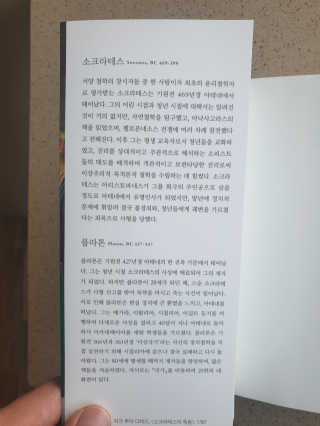 소크라테스 Socrates, BC 469-399
서양 철학의 창시자들 중 한 사람이자 최초의 윤리철학자
로 평가받는 소크라테스는 기원전 469년경 아테네에서
태어났다. 그의 어린 시절과 청년 시절에 대해서는 알려진
것이 거의 없지만, 자연철학을 탐구했고, 아낙사고라스의
책을 읽었으며, 펠로폰네소스 전쟁에 여러 차례 참전했다
고 전해진다. 이후 그는 평생 교육자로서 청년들을 교화하
였고, 진리를 상대적이고 주관적으로 해석하는 소피스트
들의 태도를 배격하며 객관적이고 보편타당한 진리로써
이상주의적 목적론적 철학을 수립하는 데 힘썼다. 소크라
테스는 아리스토파네스가 그를 희극의 주인공으로 삼을
정도로 아테네에서 유명인사가 되었지만, 말년에 정치적
문제에 휘말려 결국 불경죄와, 청년들에게 궤변을 가르쳤
다는 죄목으로 사형을 당했다.
플라톤 Platon, BC 427-347
플라톤은 기원전 427년경 아테네의 한 귀족 가문에서 태어났
다. 그는 청년 시절 소크라테스의 사상에 매료되어 그의 제자
가 되었다. 하지만 플라톤이 28세가 되던 해, 스승 소크라테
스가 사형 선고를 받아 독배를 마시고 죽는 사건이 벌어졌다.
이로 인해 플라톤은 현실 정치에 큰 환멸을 느끼고, 아테네를
떠났다. 그는 메가라, 이탈리아, 시칠리아, 이집트 등지를 여
행하며 다채로운 사상을 접하고 40살이 지나 아테네로 돌아
와서 아카데메이아를 세워 학생들을 가르쳤다. 플라톤은 기